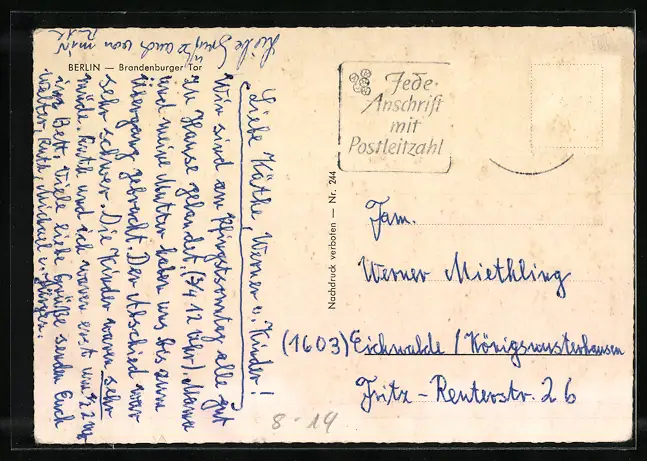 BERLIN — Brandenburger Tor
Liebe Grüße auch von mir
Ruth
Liebe Käthe, Werner u. Kinder!
Wir sind am Pfingstsonntag alle gut
zu Hause gelandet. (3/4 12 Uhr) Mama
und meine Mutter haben uns bis zum
Übergang gebracht. Der Abschied war
sehr schwer. Die Kinder waren sehr
müde. Ruth und ich waren erst um 1/2 2 Uhr
im Bett. Viele liebe Grüße senden Euch
Walter, Ruth, Michael u. Jürgen.
Nachdruck verboten — Nr. 244
Jede
Anschrift
mit
Postleitzahl
Fam.
Werner Miethling
(1603) Eichwalde / Königswusterhausen
Fritz-Reuterstr. 26
8-14